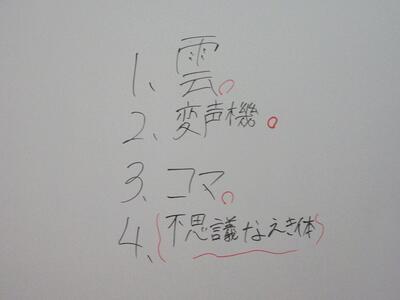 1、雲。
2、変声機。
3、コマ。
4、(不思議なえき体)